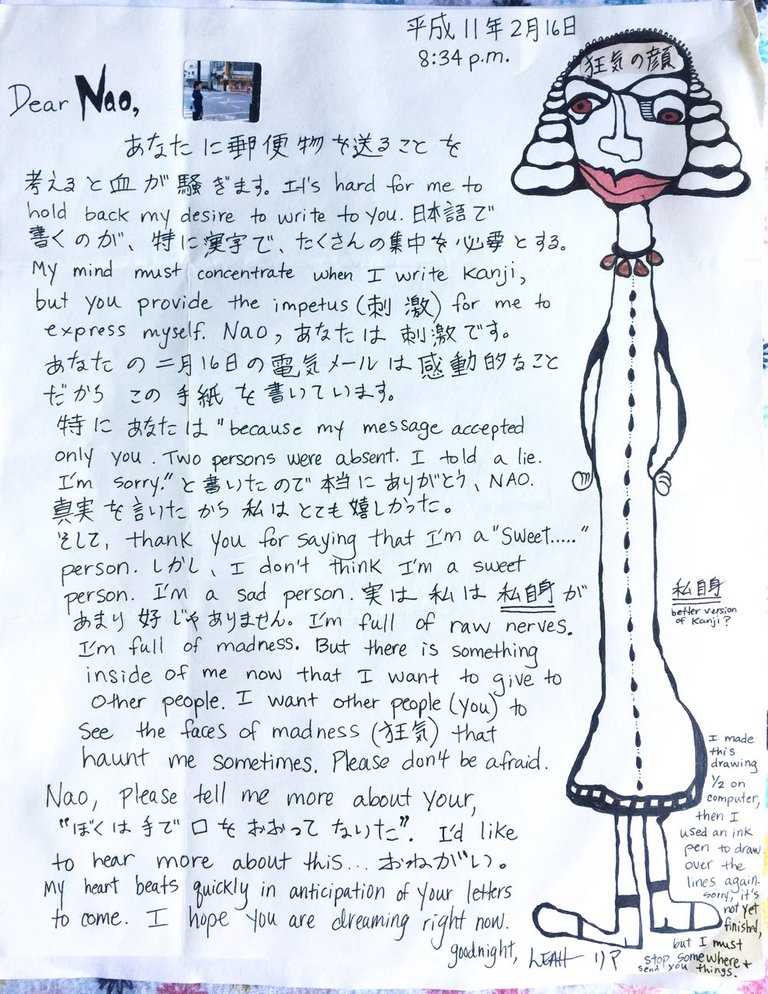 平成11年2月16日
8:34 p.m.
Dear Nao,
あなたに郵便物を送ることを
考えると血が騒ぎます。It's hard for me to
hold back my desire to write to you. 日本語で
書くのが、特に漢字で、たくさんの集中を必要とする。
My mind must concentrate when I write Kanji,
but you provide the impetus (刺激) for me to
express myself. Nao, あなたは刺激です。
あなたの二月16日の電気メールは感動的なこと
だからこの手紙を書いています。
特にあなたは "because my message accepted
only you. Two persons were absent. I told a lie.
I'm sorry." と書いたので本当にありがとう、NAO.
真実を言いたから私はとても嬉しかった。
そして, thank you for saying that I'm a "Sweet....."
person. しかし, I don't think I'm a sweet
person. I'm a sad person. 実は私は私自身が
あまり好じゃありません。I'm full of raw nerves.
I'm full of madness. But there is something
inside of me now that I want to give to
other people. I want other people (you) to
see the faces of madness (狂気) that
haunt me sometimes. Please don't be afraid.
Nao, please tell me more about your,
"ぼくは手で口をおおってないた". I'd like
to hear more about this... おねがい。
My heart beats quickly in anticipation of your letters
to come. I hope you are dreaming right now.
goodnight, LEAH リア
狂気の顔
私自身
better version
of Kanji?
I made
this
drawing
1/2 on
computer,
then I
used an ink
pen to draw
over the
lines again.
Sorry, it's
not yet
finished,
but I must
stop somewhere +
send you things.